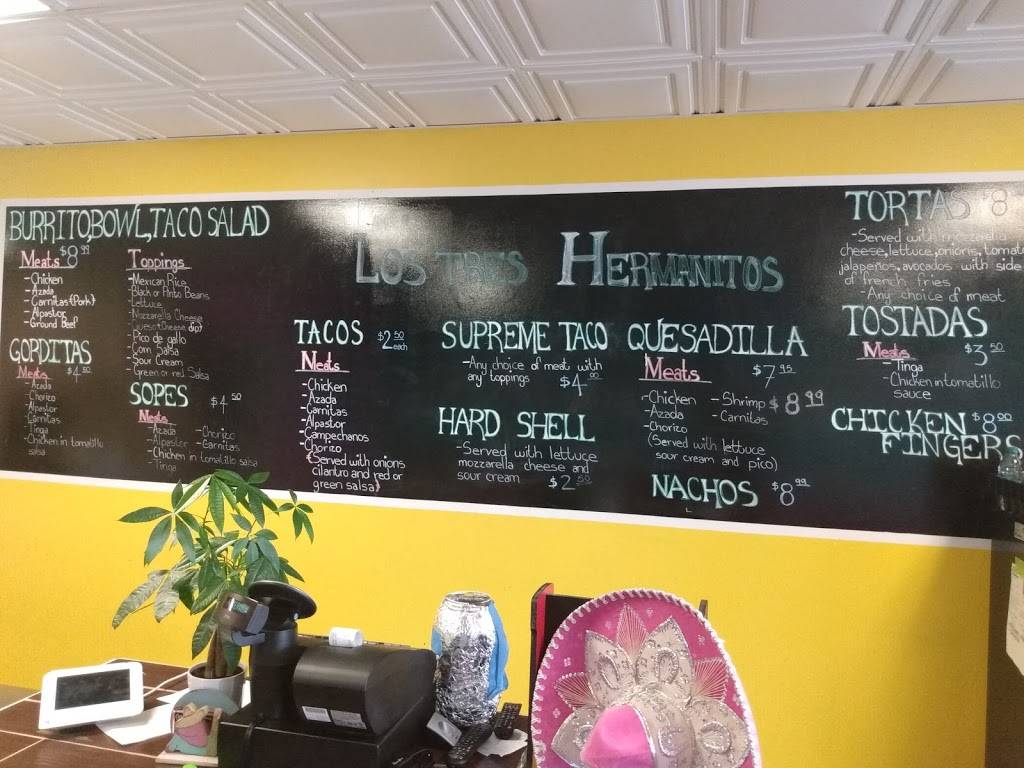 BURRITOBOWL, TACO SALAD
Meats $8.99
-Chicken
-Azada
-Carnitas (Pork)
-Alpastor
-Ground Beef
Toppings
-Mexican Rice
-Black or Pinto Beans
-Lettuce
-Mozzarella Cheese
-Queso (Cheese dip)
-Pico de gallo
-Corn Salsa
-Sour Cream
-Green or red Salsa
GORDITAS
Meats $4.50
-Azada
-Chorizo
-Alpastor
-Carnitas
-Tinga
-Chicken in tomatillo
salsa
SOPES $4.50
Meats
-Azada -Chorizo
-Alpastor -Carnitas
-Chicken in tomatillo salsa
-Tinga
LOS TRES HERMANITOS
TACOS $2.50
each
Meats
-Chicken
-Azada
-Carnitas
-Alpastor
-Campechanos
-Chorizo
(Served with onions
cilantro and red or
green salsa)
SUPREME TACO
-Any choice of meat with
any toppings $4.00
HARD SHELL
-Served with lettuce
mozzarella cheese and
sour cream $2.50
QUESADILLA
Meats $7.95
-Chicken -Shrimp $8.99
-Azada -Carnitas
-Chorizo
(Served with lettuce
sour cream and pico)
NACHOS $8.99
TORTAS $8
-Served with mozzarella
cheese, lettuce, onions, tomato
jalapeños, avocados with side
of french fries
-Any choice of meat
TOSTADAS
Meats $3.50
-Tinga
-Chicken in tomatillo
sauce
CHICKEN $8.00
FINGERS